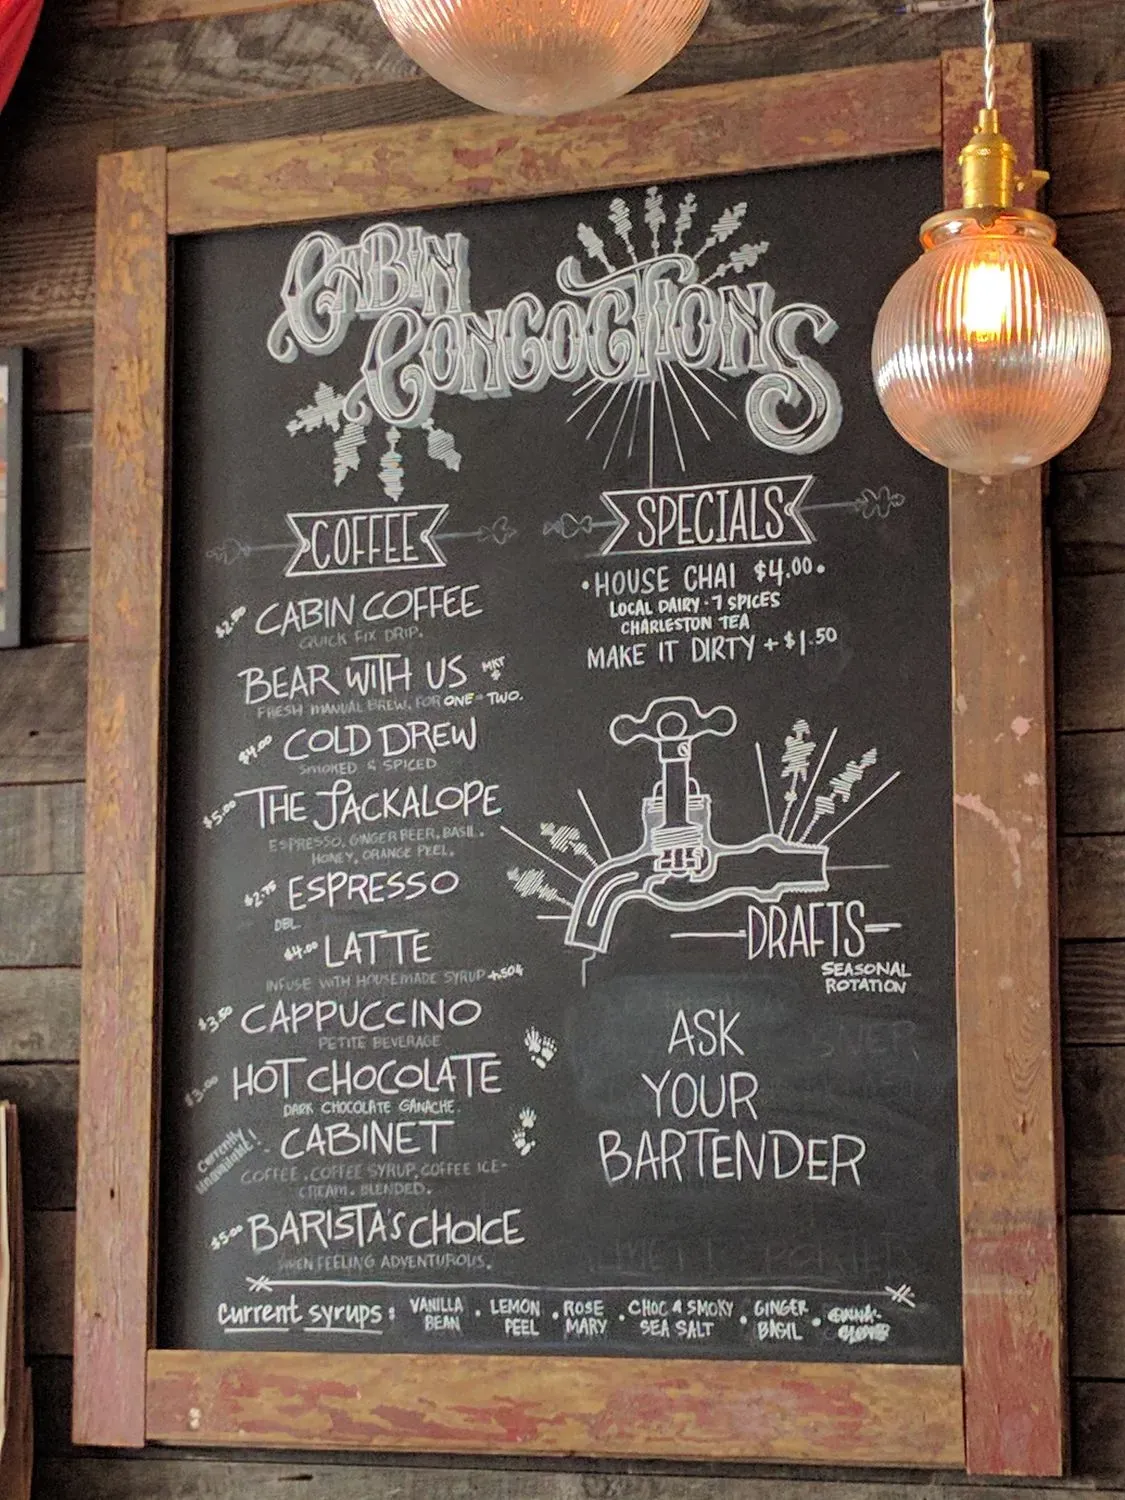 CABIN
CONCOCTIONS
COFFEE
$2.50 CABIN COFFEE
QUICK FIX DRIP.
BEAR WITH US MKT $
FRESH MANUAL BREW, FOR ONE - TWO.
$4.00 COLD DREW
SMOKED & SPICED
$5.00 THE JACKALOPE
ESPRESSO, GINGER BEER, BASIL,
HONEY, ORANGE PEEL.
$2.75 ESPRESSO
DBL.
$4.00 LATTE
INFUSE WITH HOUSEMADE SYRUP +.50¢
$3.50 CAPPUCCINO
PETITE BEVERAGE
$3.00 HOT CHOCOLATE
DARK CHOCOLATE GANACHE.
Currently
Unavailable!
CABINET
COFFEE, COFFEE SYRUP, COFFEE ICE-
CREAM. BLENDED.
$5.00 BARISTA'S CHOICE
WHEN FEELING ADVENTUROUS.
SPECIALS
• HOUSE CHAI $4.00 •
LOCAL DAIRY · 7 SPICES
CHARLESTON TEA
MAKE IT DIRTY + $1.50
DRAFTS
SEASONAL
ROTATION
ASK
YOUR
BARTENDER
Current syrups: VANILLA BEAN • LEMON PEEL • ROSE MARY • CHOC & SMOKY SEA SALT • GINGER BASIL •